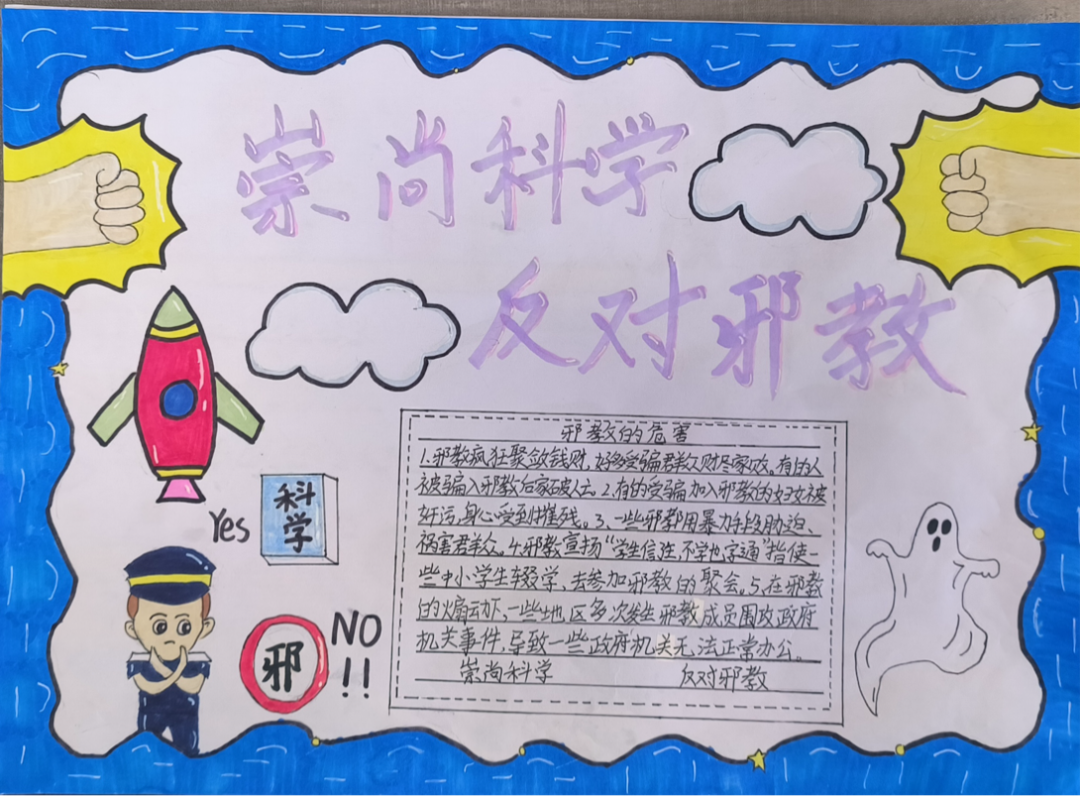 崇尚科学
反对邪教
邪教的危害
1.邪教疯狂聚敛钱财,好多受骗群众财尽家败,有的人
被骗入邪教后家破人亡。2.有的受骗加入邪教的妇女被
奸污,身心受到摧残。3、一些邪教用暴力手段胁迫、
祸害群众。4.邪教宣扬“学生信注,不学也字通”指使一
些中小学生辍学、去参加邪教的聚会。5.在邪教
的煽动下,一些地区多次发生邪教成员围攻政府
机关事件,导致一些政府机关无法正常办公。
崇尚科学 反对邪教
Yes
科学
邪
NO
!!